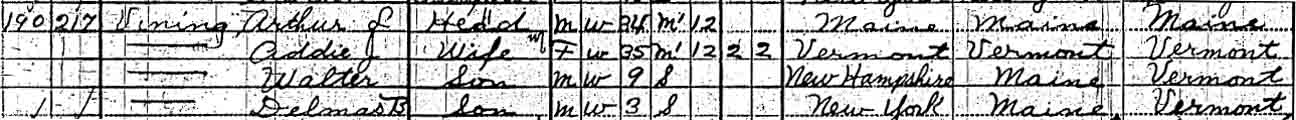 190 217 Vining Arthur J Head m w 34 m' 12 Maine Maine Maine
Addie J Wife F w 35 m' 12 2 2 Vermont Vermont Vermont
Walter Son m w 9 S New Hampshire Maine Vermont
Delmas B Son m w 3 S New York Maine Vermont